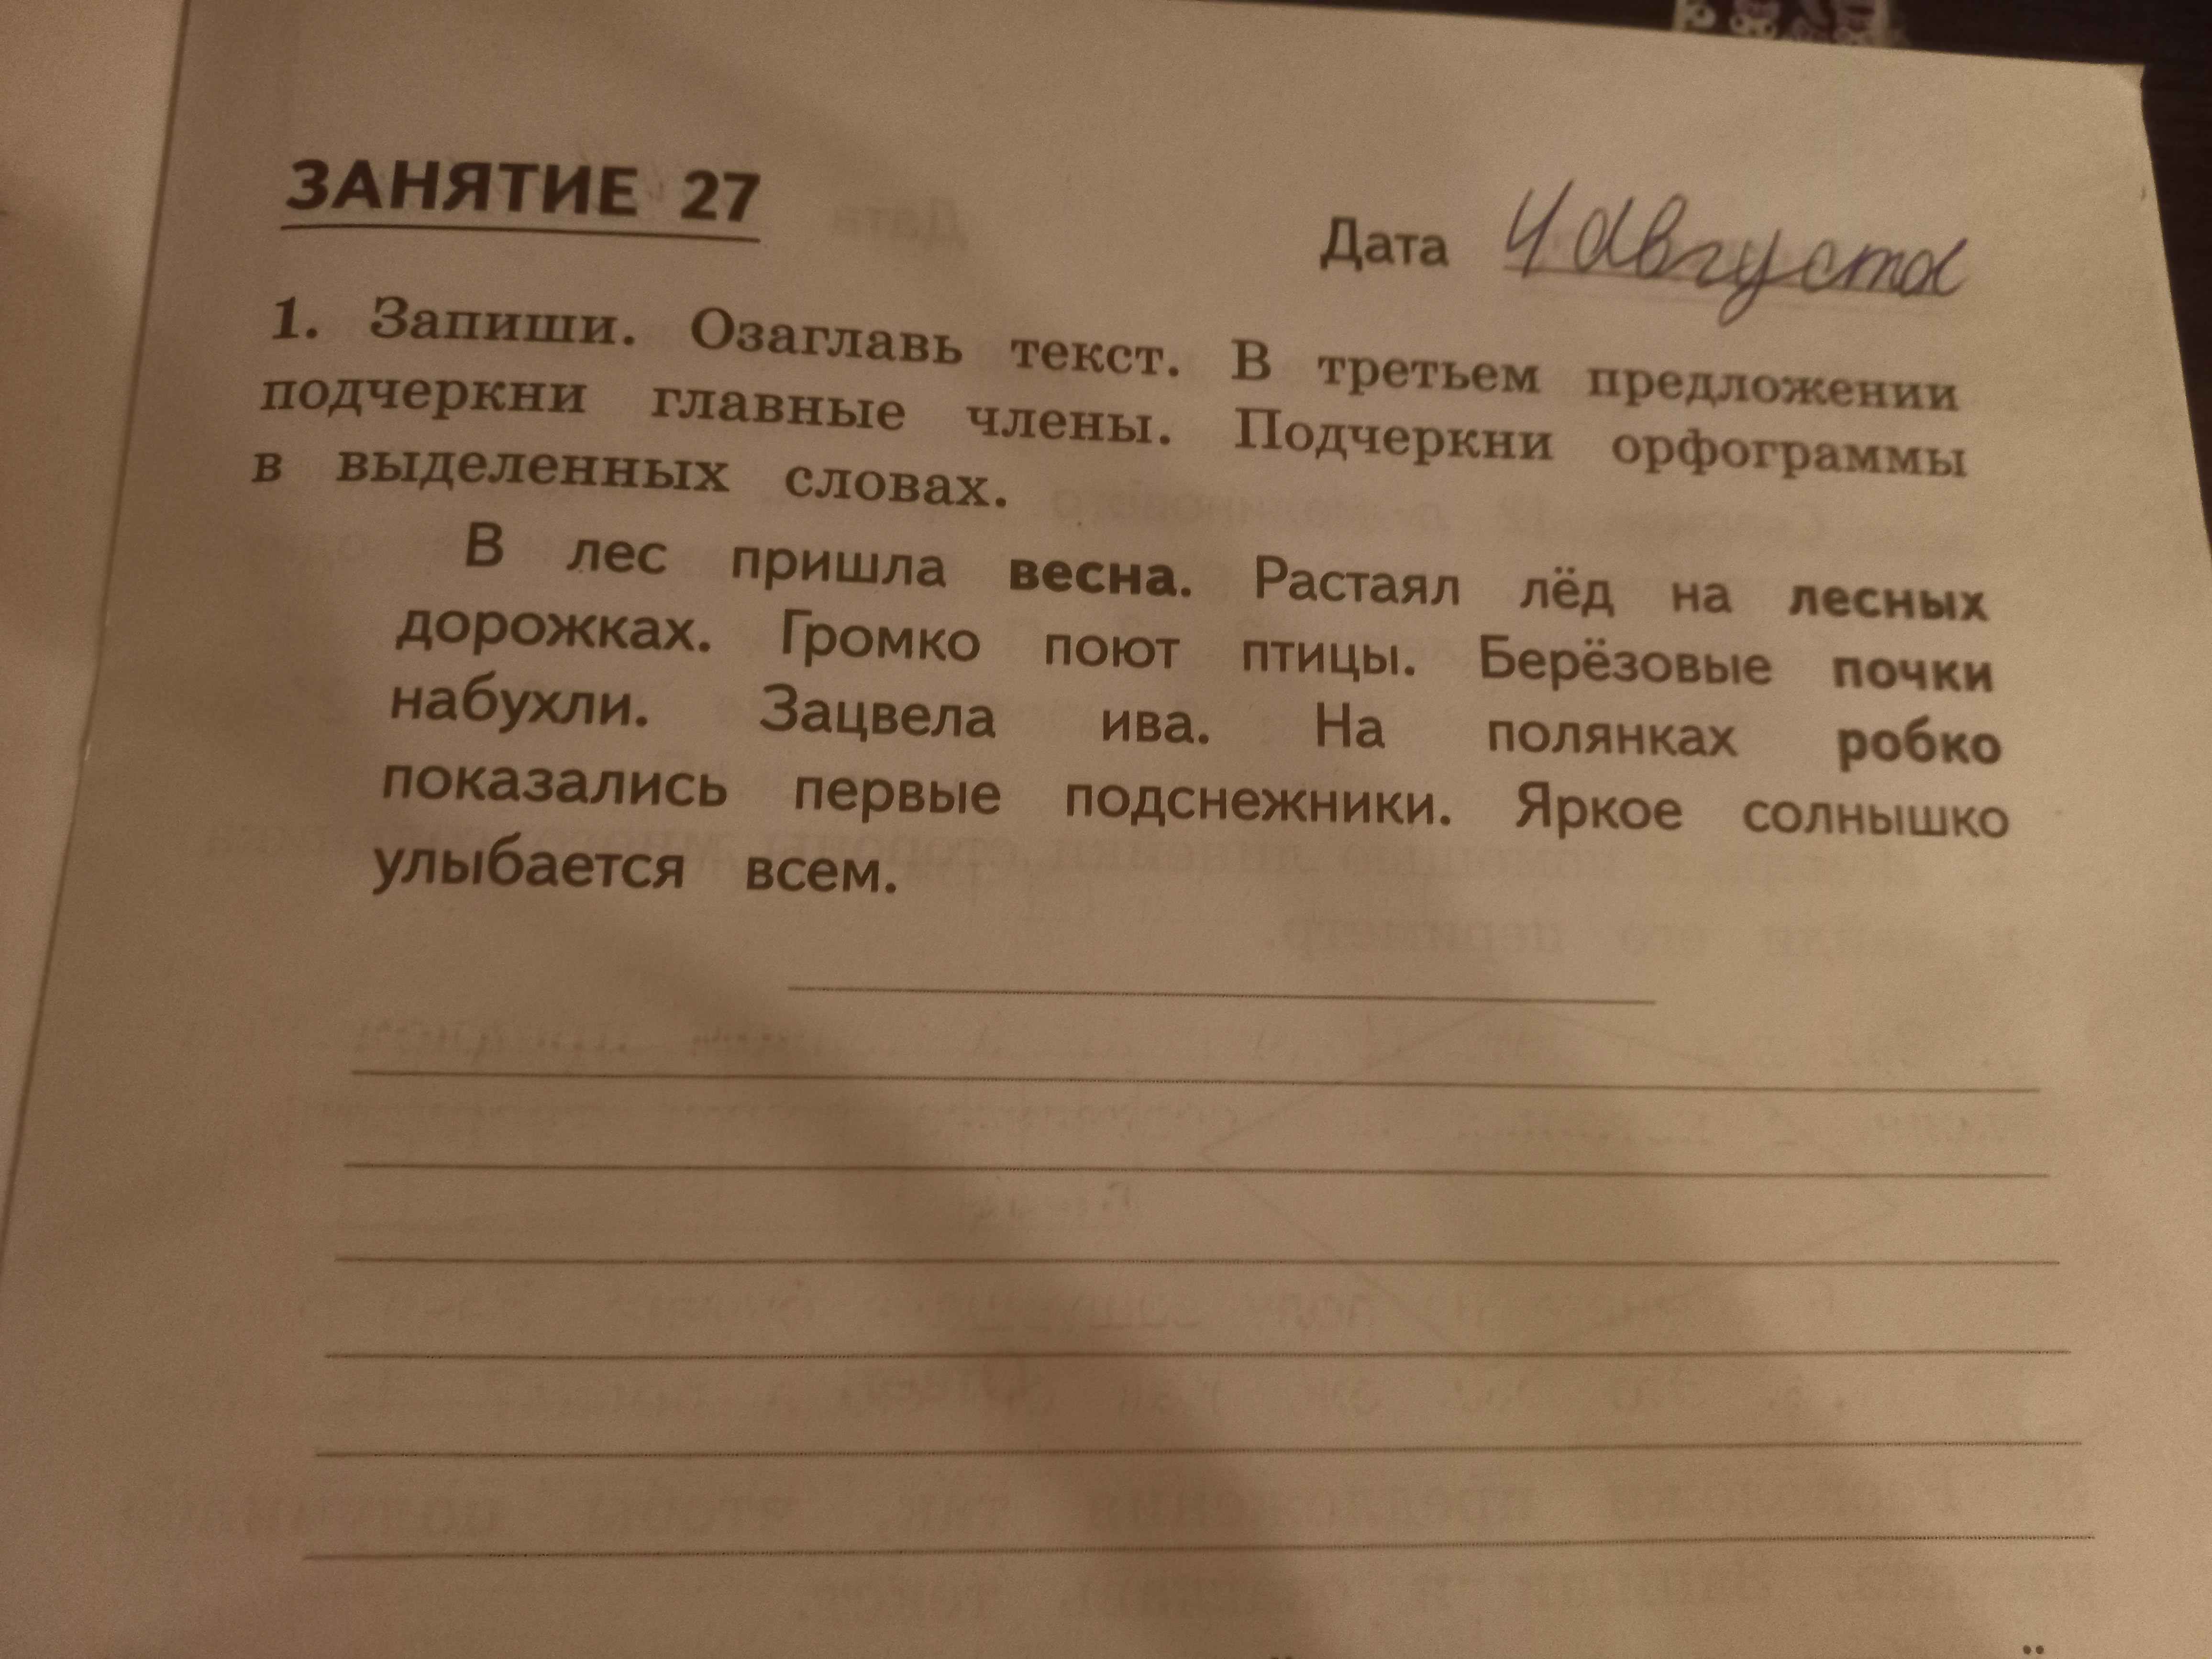 ЗАНЯТИЕ 27
Дата 4 августа
1. Запиши. Озаглавь текст. В третьем предложении
подчеркни главные члены. Подчеркни орфограммы
в выделенных словах.
В лес пришла весна. Растаял лёд на лесных
дорожках. Громко поют птицы. Берёзовые почки
набухли. Зацвела ива. На полянках робко
показались первые подснежники. Яркое солнышко
улыбается всем.